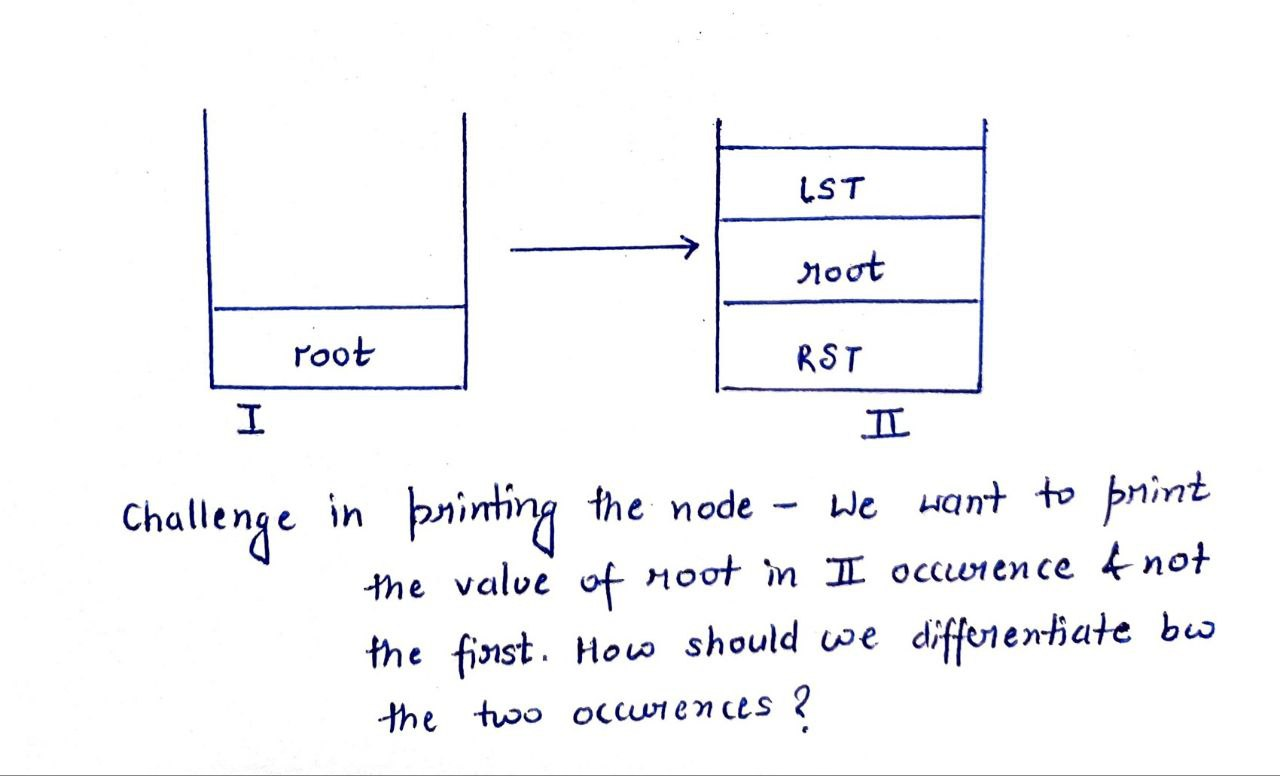 LST
root
root
RST
I
II
Challenge in printing the node - We want to print
the value of root in II occurence & not
the first. How should we differentiate bw
the two occurences ?